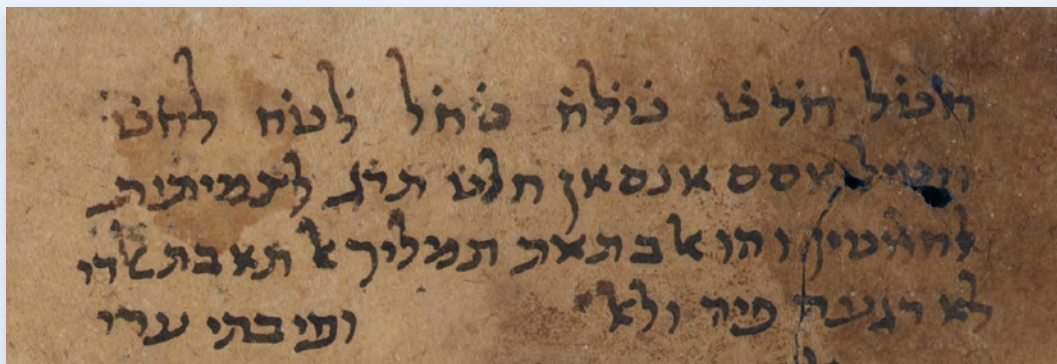 חטל חלט טלח טחל לטח לחט
חטיל אסם אנסאן חלט תרג לצמיתית
לחלטין והו אבתאת תמליך אלתאבת אלדי
לא רגעה פיה ולא ופי בתי ערי